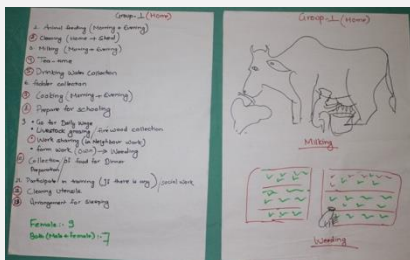 Group-1 (Home)
1. Animal feeding (Morning + Evening)
② Cleaning (Home + Shed)
3. Milking (Morning + Evening)
④ Tea-time
⑤ Drinking Water Collection
6. fodder collection
⑦ Cooking (Morning + Evening)
⑧ Prepare for schooling
9. • Go for Daily Wage
• Livestock grazing / fire wood collection
• Work sharing (in Neighbour work)
• farm work (own) → Weeding
⑩ Collection of food for Dinner
Preparation
11. Participate in training (If there is any) / social work
⑫ Cleaning Utensils
⑬ Arrangement for Sleeping
Female:- 9
Both (Male + female) :- 7
Group-1 (Home)
Milking
Weeding